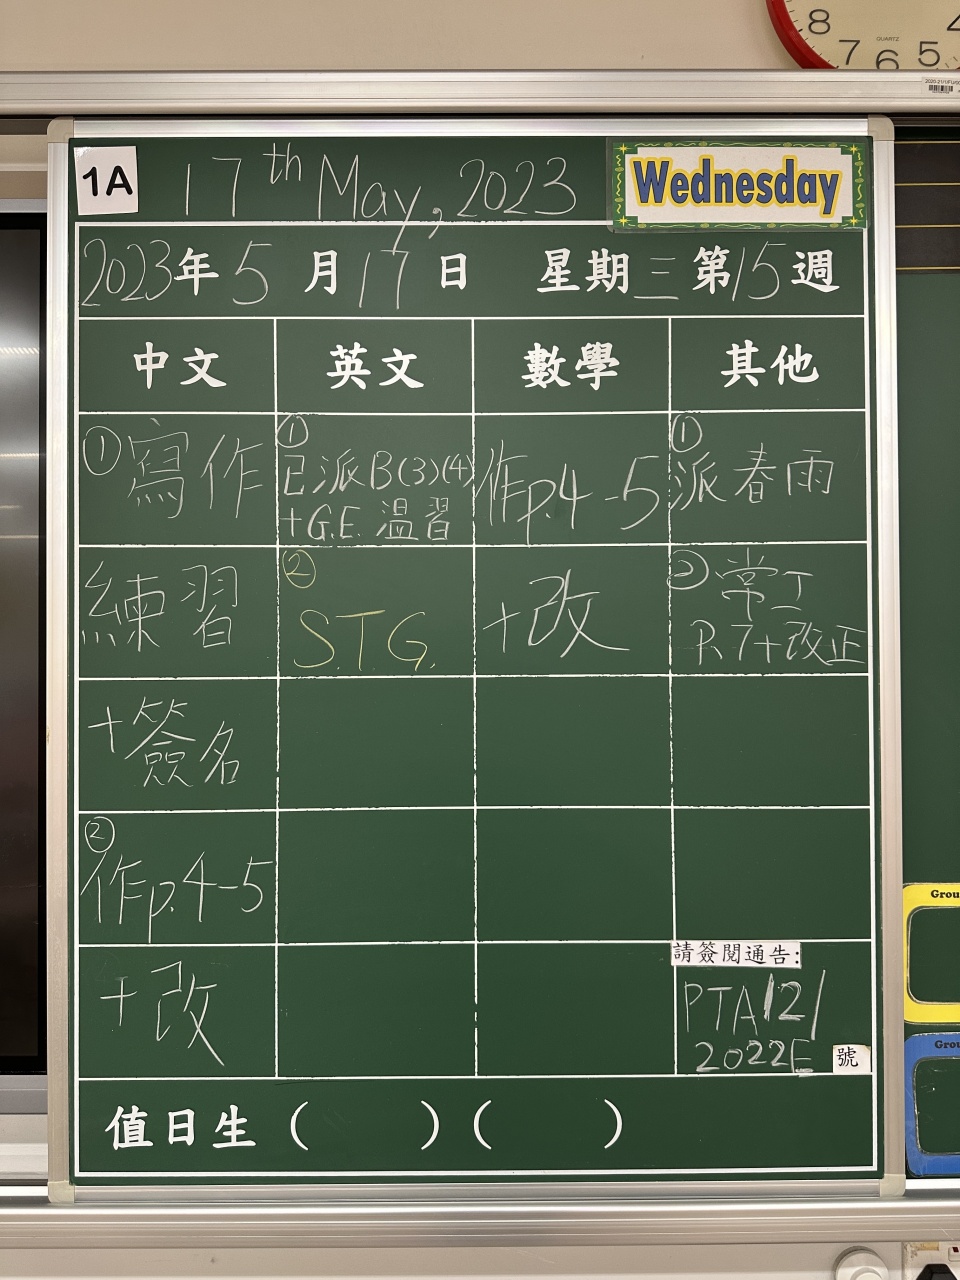 8 7 6 5 4
QUARTZ
1A
17th May, 2023
Wednesday
2023年5月17日 星期三 第15週
中文 英文 數學 其他
① 寫作
練習
+簽名
② 作p.4-5
+改
①
已派B(3)(4)
+G.E. 溫習
②
S.T.G.
作p.4-5
+改
①
派春雨
② 常丁
P.7+改正
請簽閱通告:
PTA12/
2022E 號
值日生 ( ) ( )
Grou
Grou